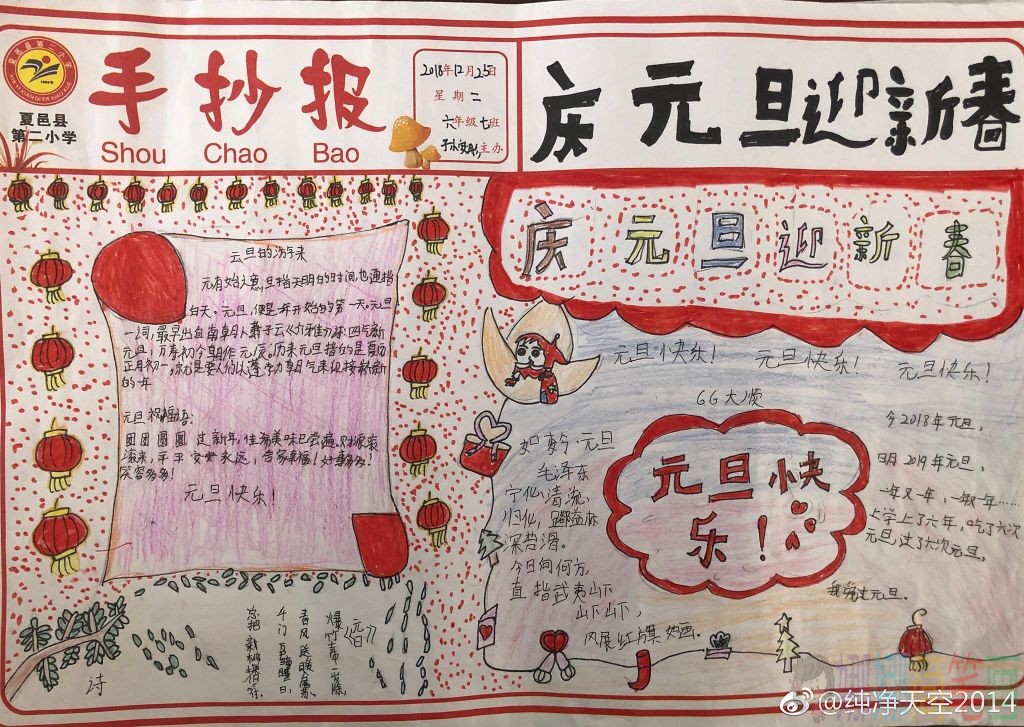 夏邑县第二小学
夏邑县
第二小学
手抄报
Shou Chao Bao
2018年12月25日
星期二
六年级七班
主办
庆元旦迎新春
庆元旦迎新春
元旦的
元有始之意,旦指天明的时间,也通指
白天。元旦,便是一年开始的第一天。元旦
一词,最早出自南朝人萧子云《介雅》诗:四气新
元旦,万寿初今朝作元辰。历来元旦指的是夏历
正月初一,
的一年
元旦祝福语:
团团圆圆过新年,佳肴美味已尝遍。财源滚
滚来,平平安安永远,
笑容多多!
元旦快乐!
诗
《元日》
爆竹声中一岁除,
春风送暖入屠苏。
千门万户曈曈日,
总把新桃换旧符。
元旦快乐! 元旦快乐! 元旦快乐!
66大顺
如梦令·元旦
毛泽东
宁化、清流、
归化,路隘林
深苔滑。
今日向何方,
直指武夷山下
山下山下,
风展红旗如画。
元旦快
乐!
今2018年元旦,
明2019年元旦,
一年又一年,一年又一年……
上学上了六年,吃了六次
元旦,过了六次元旦。
我爱过元旦。
@纯净天空2014